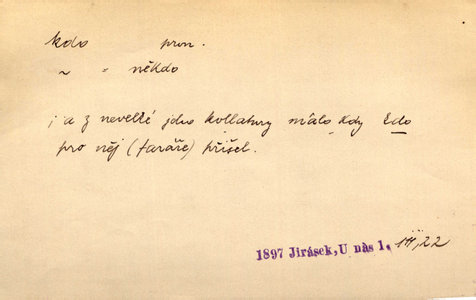 kdo pron.
~ = někdo
; a z nevelké jeho kollatury málo kdy kdo
pro něj (faráře) přišel.
1897 Jirásek, U nás 1. 22